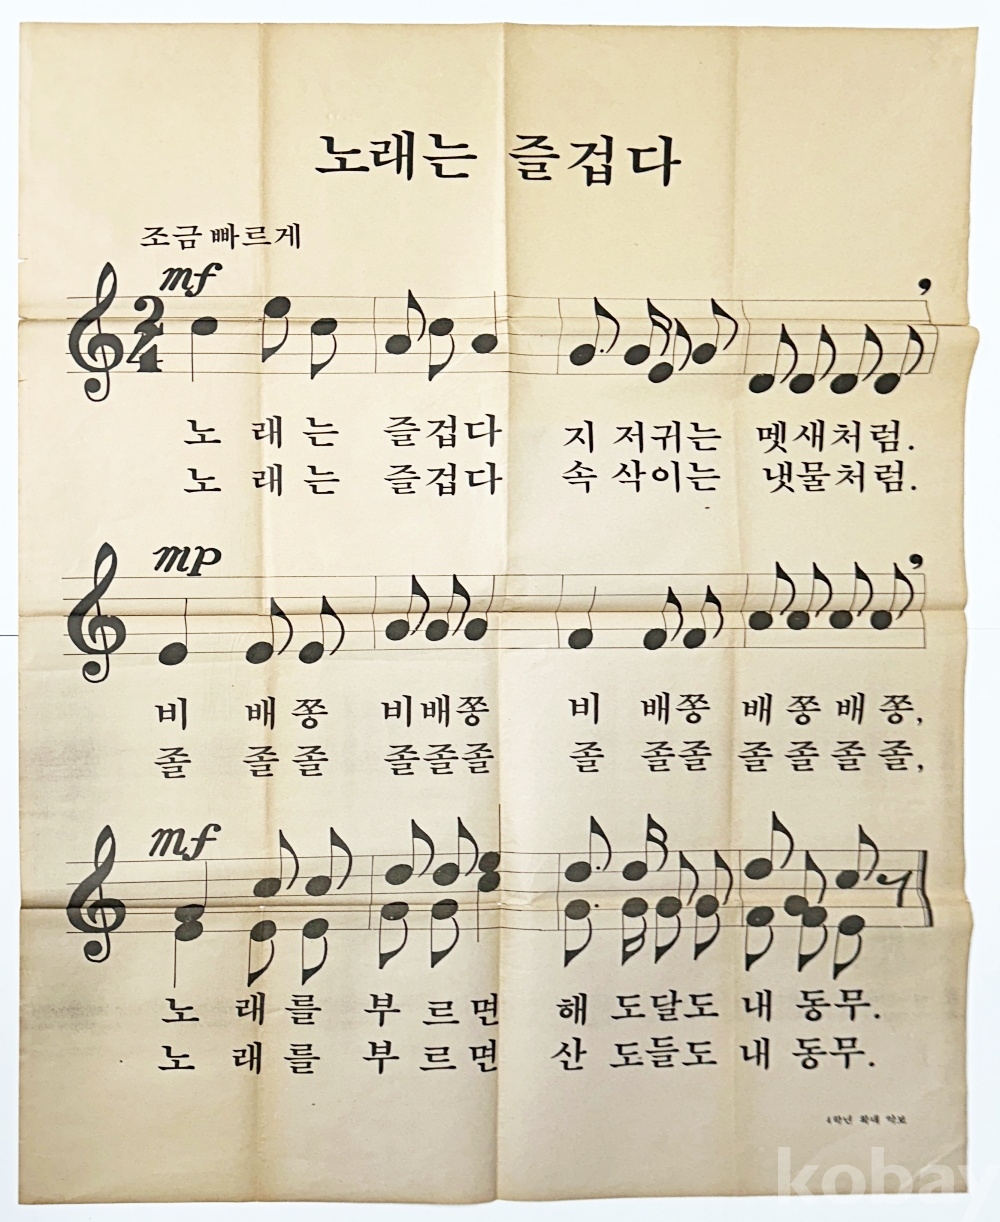 노래는 즐겁다
조금 빠르게
mf
2
4
노 래 는 즐겁다 지 저귀는 멧새처럼.
노 래 는 즐겁다 속 삭이는 냇물처럼.
mp
비 배 쫑 비배쫑 비 배쫑 배 쫑 배 쫑,
졸 졸 졸 졸졸졸 졸 졸졸 졸 졸 졸 졸,
mf
노 래 를 부 르 면 해 도달도 내 동무.
노 래 를 부 르 면 산 도들도 내 동무.
4학년 확대 악보
kobay